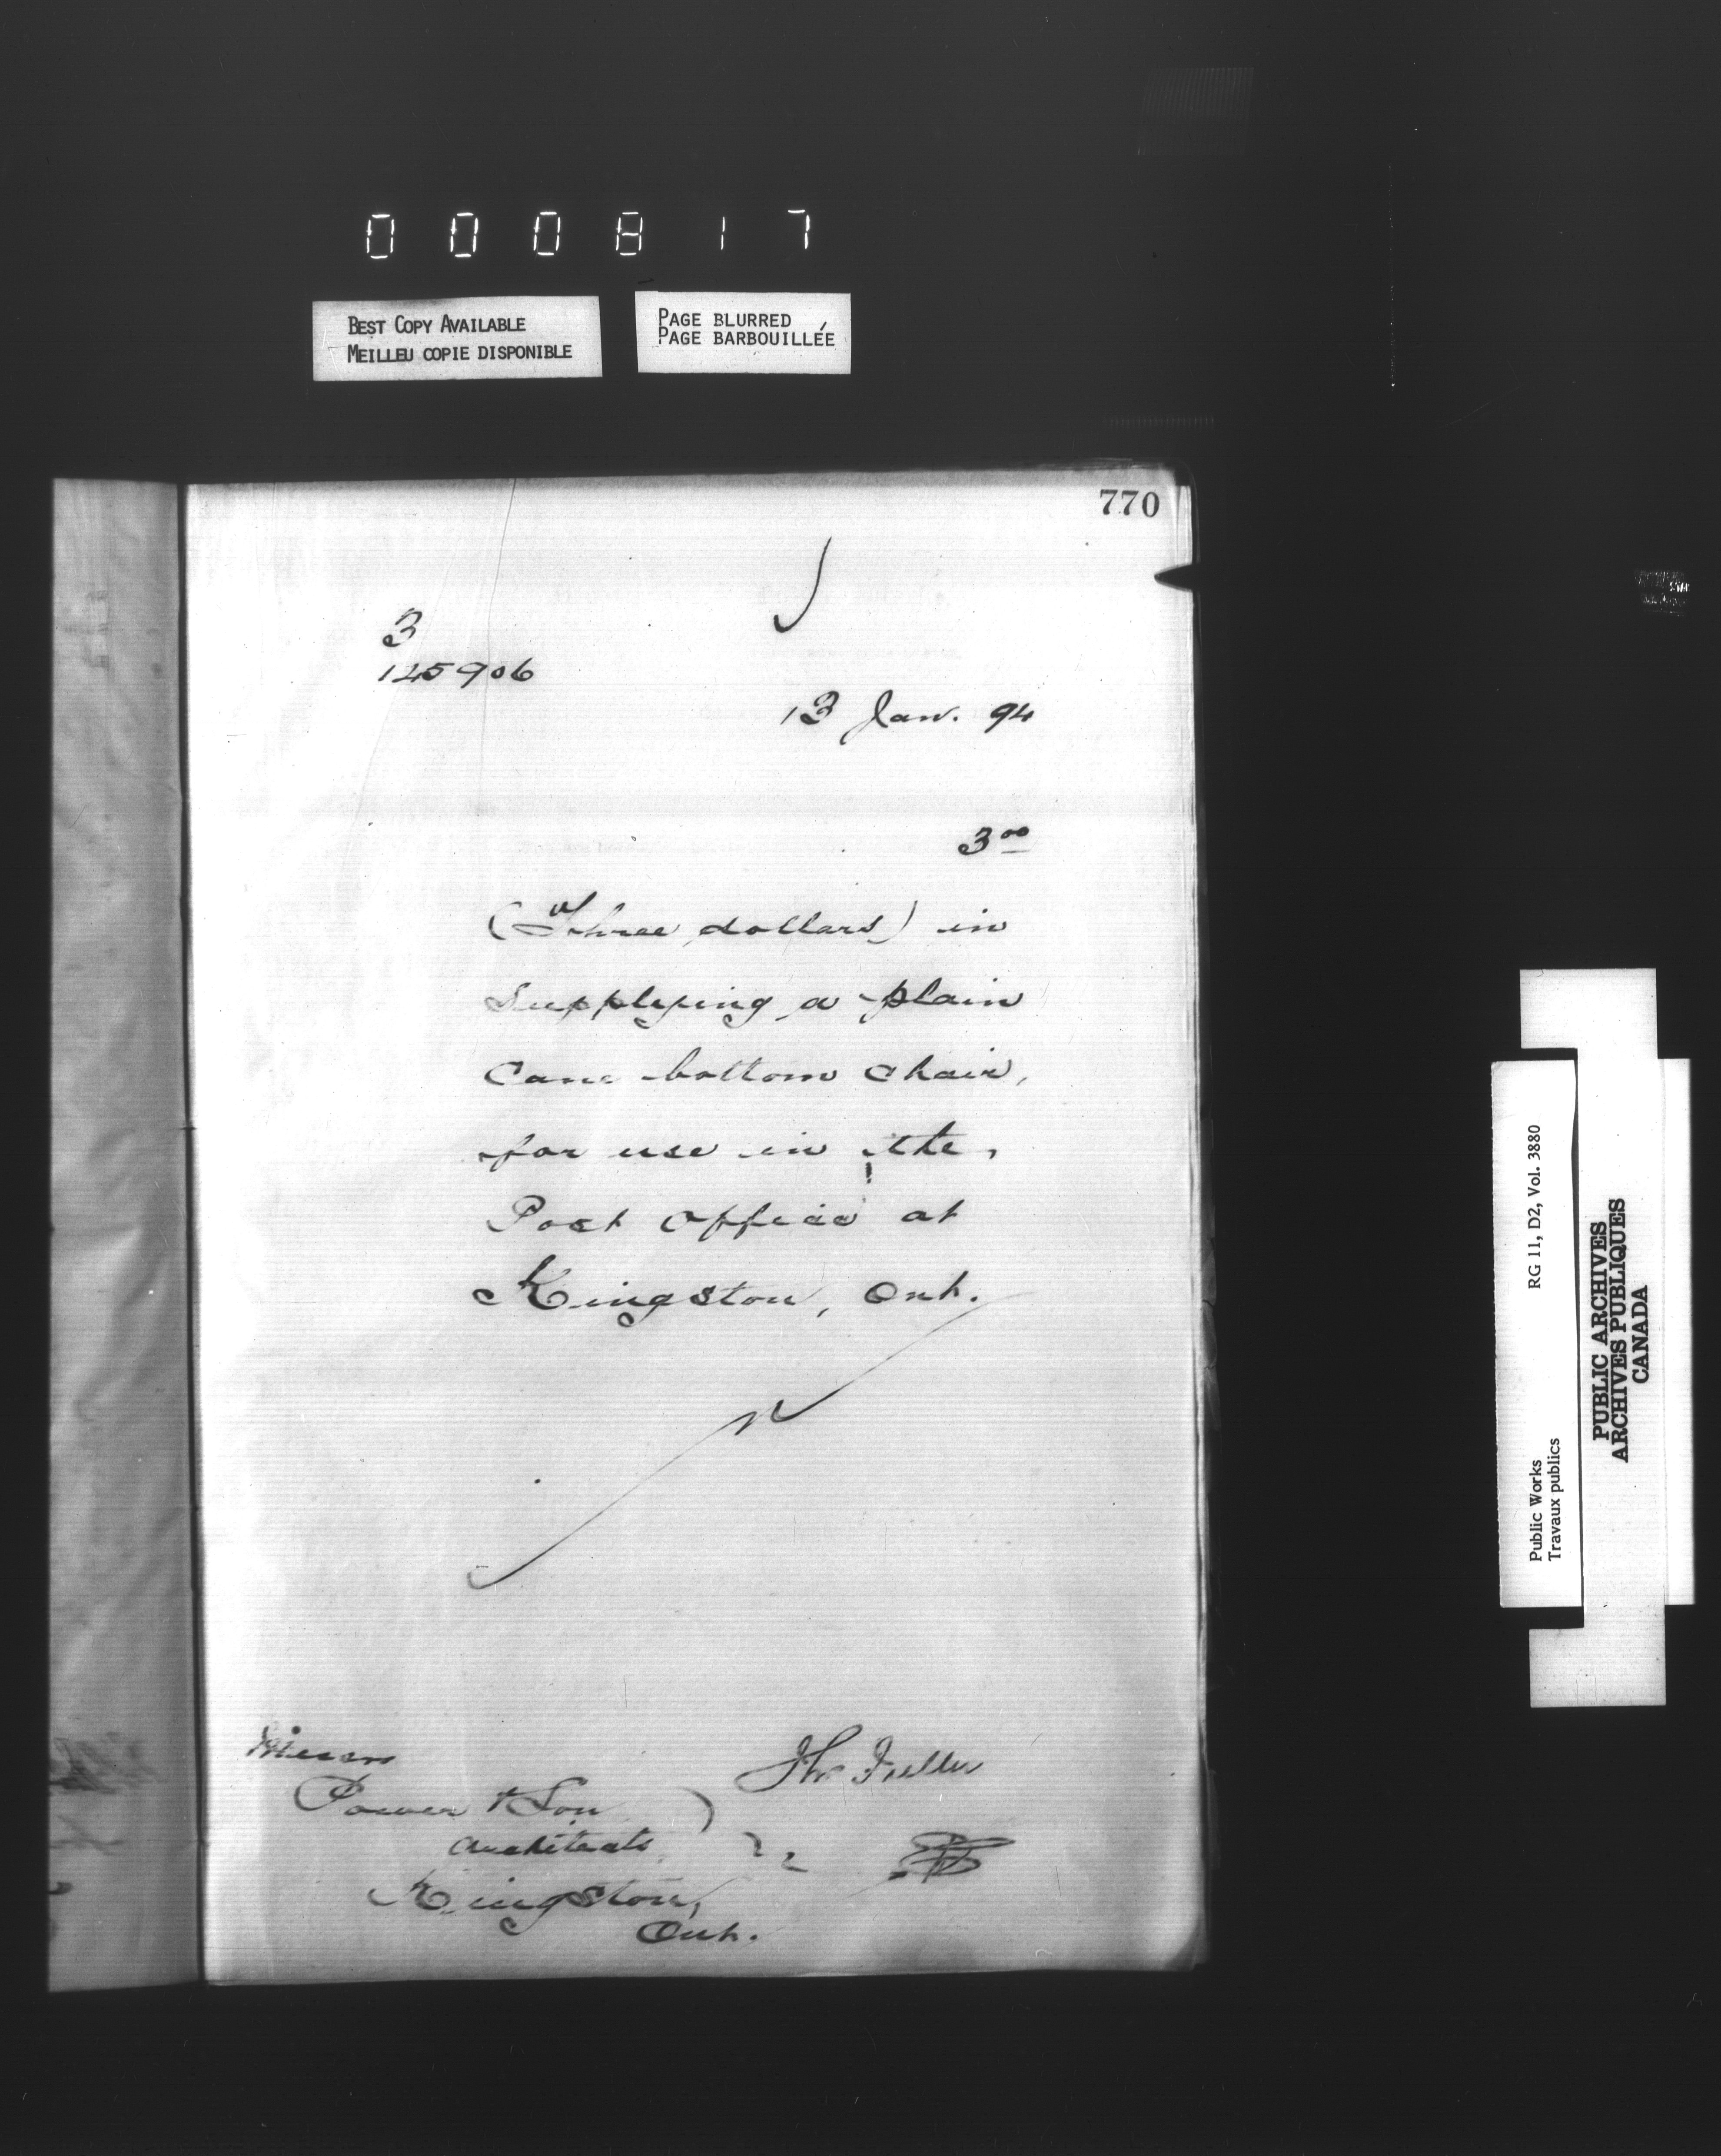 000817
BEST COPY AVAILABLE
MEILLEU COPIE DISPONIBLE
PAGE BLURRED
PAGE BARBOUILLÉE
770
3
125906
13 Jan. 94
3 00
(Three dollars) in
supplying a plain
cane bottom chair,
for use in the
Post Office at
Kingston, Ont.
Messrs
Power & Son
Architects
Kingston,
Ont.
Thos Fuller
RG 11, D2, Vol. 3880
Public Works
Travaux publics
PUBLIC ARCHIVES
ARCHIVES PUBLIQUES
CANADA